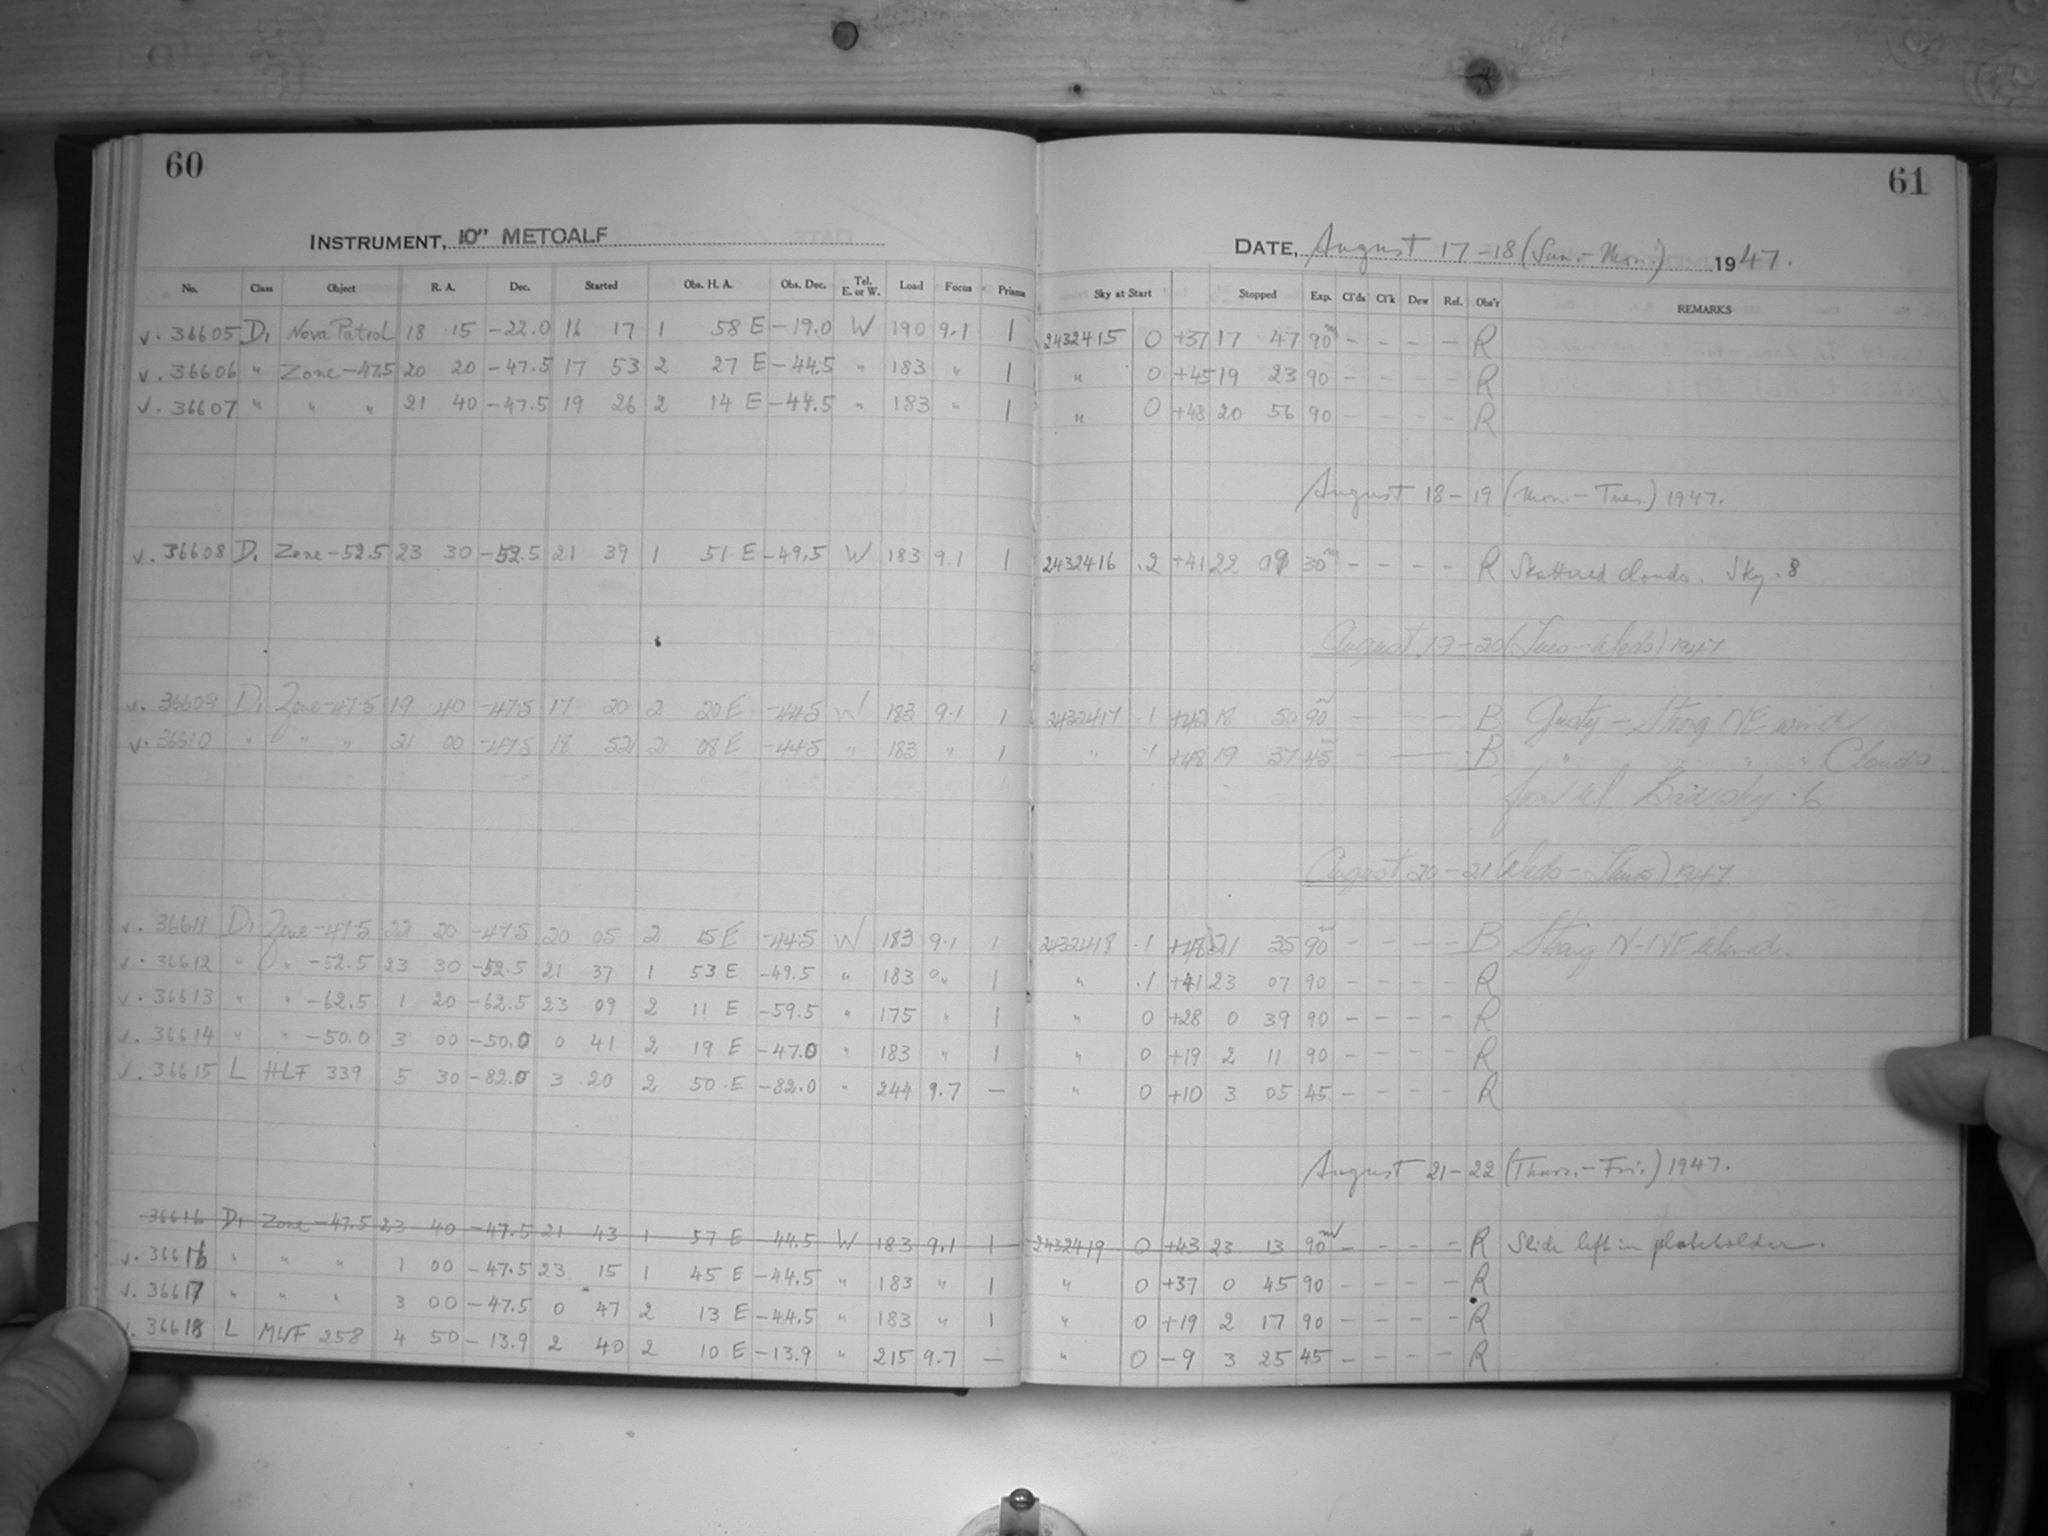 60
INSTRUMENT, 10" METCALF
No. Class Object R. A. Dec. Started Obs. H. A. Obs. Dec. Tel. E. or W. Load Focus Prisms
v. 36605 D1 Nova Patrol 18 15 -22.0 16 17 1 58 E -19.0 W 190 9.1 1
v. 36606 " Zone -47.5 20 20 -47.5 17 53 2 27 E -44.5 " 183 " 1
v. 36607 " " " 21 40 -47.5 19 26 2 14 E -44.5 " 183 " 1
v. 36608 D1 Zone -52.5 23 30 -52.5 21 39 1 51 E -49.5 W 183 9.1 1
v. 36609 D1 Zone -47.5 19 40 -47.5 17 20 2 20 E -44.5 W 183 9.1 1
v. 36610 " " " 21 00 -47.5 18 52 2 08 E -44.5 " 183 " 1
v. 36611 D1 Zone -47.5 22 20 -47.5 20 05 2 15 E -44.5 W 183 9.1 1
v. 36612 " " -52.5 23 30 -52.5 21 37 1 53 E -49.5 " 183 " 1
v. 36613 " " -62.5 1 20 -62.5 23 09 2 11 E -59.5 " 175 " 1
v. 36614 " " -50.0 3 00 -50.0 0 41 2 19 E -47.0 " 183 " 1
v. 36615 L HLF 339 5 30 -82.0 3 20 2 50 E -82.0 " 244 9.7 —
36616 D1 Zone -47.5 23 40 -47.5 21 43 1 57 E -44.5 W 183 9.1 1
v. 36616 " " " 1 00 -47.5 23 15 1 45 E -44.5 " 183 " 1
v. 36617 " " " 3 00 -47.5 0 47 2 13 E -44.5 " 183 " 1
v. 36618 L MWF 258 4 50 -13.9 2 40 2 10 E -13.9 " 215 9.7 —
61
DATE, August 17-18 (Sun.-Mon.) 1947.
Sky at Start Stopped Exp. Cl'ds Cl'k Dew Ref. Obs'r REMARKS
2432415 0 +37 17 47 90m - - - - R
" 0 +45 19 23 90 - - - - R
" 0 +48 20 56 90 - - - - R
August 18-19 (Mon.-Tues.) 1947.
2432416 .2 +41 22 09 30m - - - - R Skattered clouds. Sky .8
August 19-20 (Tues-Weds) 1947
2432417 .1 +42 18 50 90m - - - - B Gusty - Strong NE wind
" .1 +48 19 37 45m - - - - B " " " " Clouds
sky .6
August 20-21 (Weds-Thurs) 1947
2432418 .1 +48 21 35 90m - - - - B Strong N-NE wind.
" .1 +41 23 07 90 - - - - R
" 0 +28 0 39 90 - - - - R
" 0 +19 2 11 90 - - - - R
" 0 +10 3 05 45 - - - - R
August 21-22 (Thurs.-Fri.) 1947.
2432419 0 +43 23 13 90m - - - - R Slide left in plateholder.
" 0 +37 0 45 90 - - - - R
" 0 +19 2 17 90 - - - - R
" 0 -9 3 25 45 - - - - R